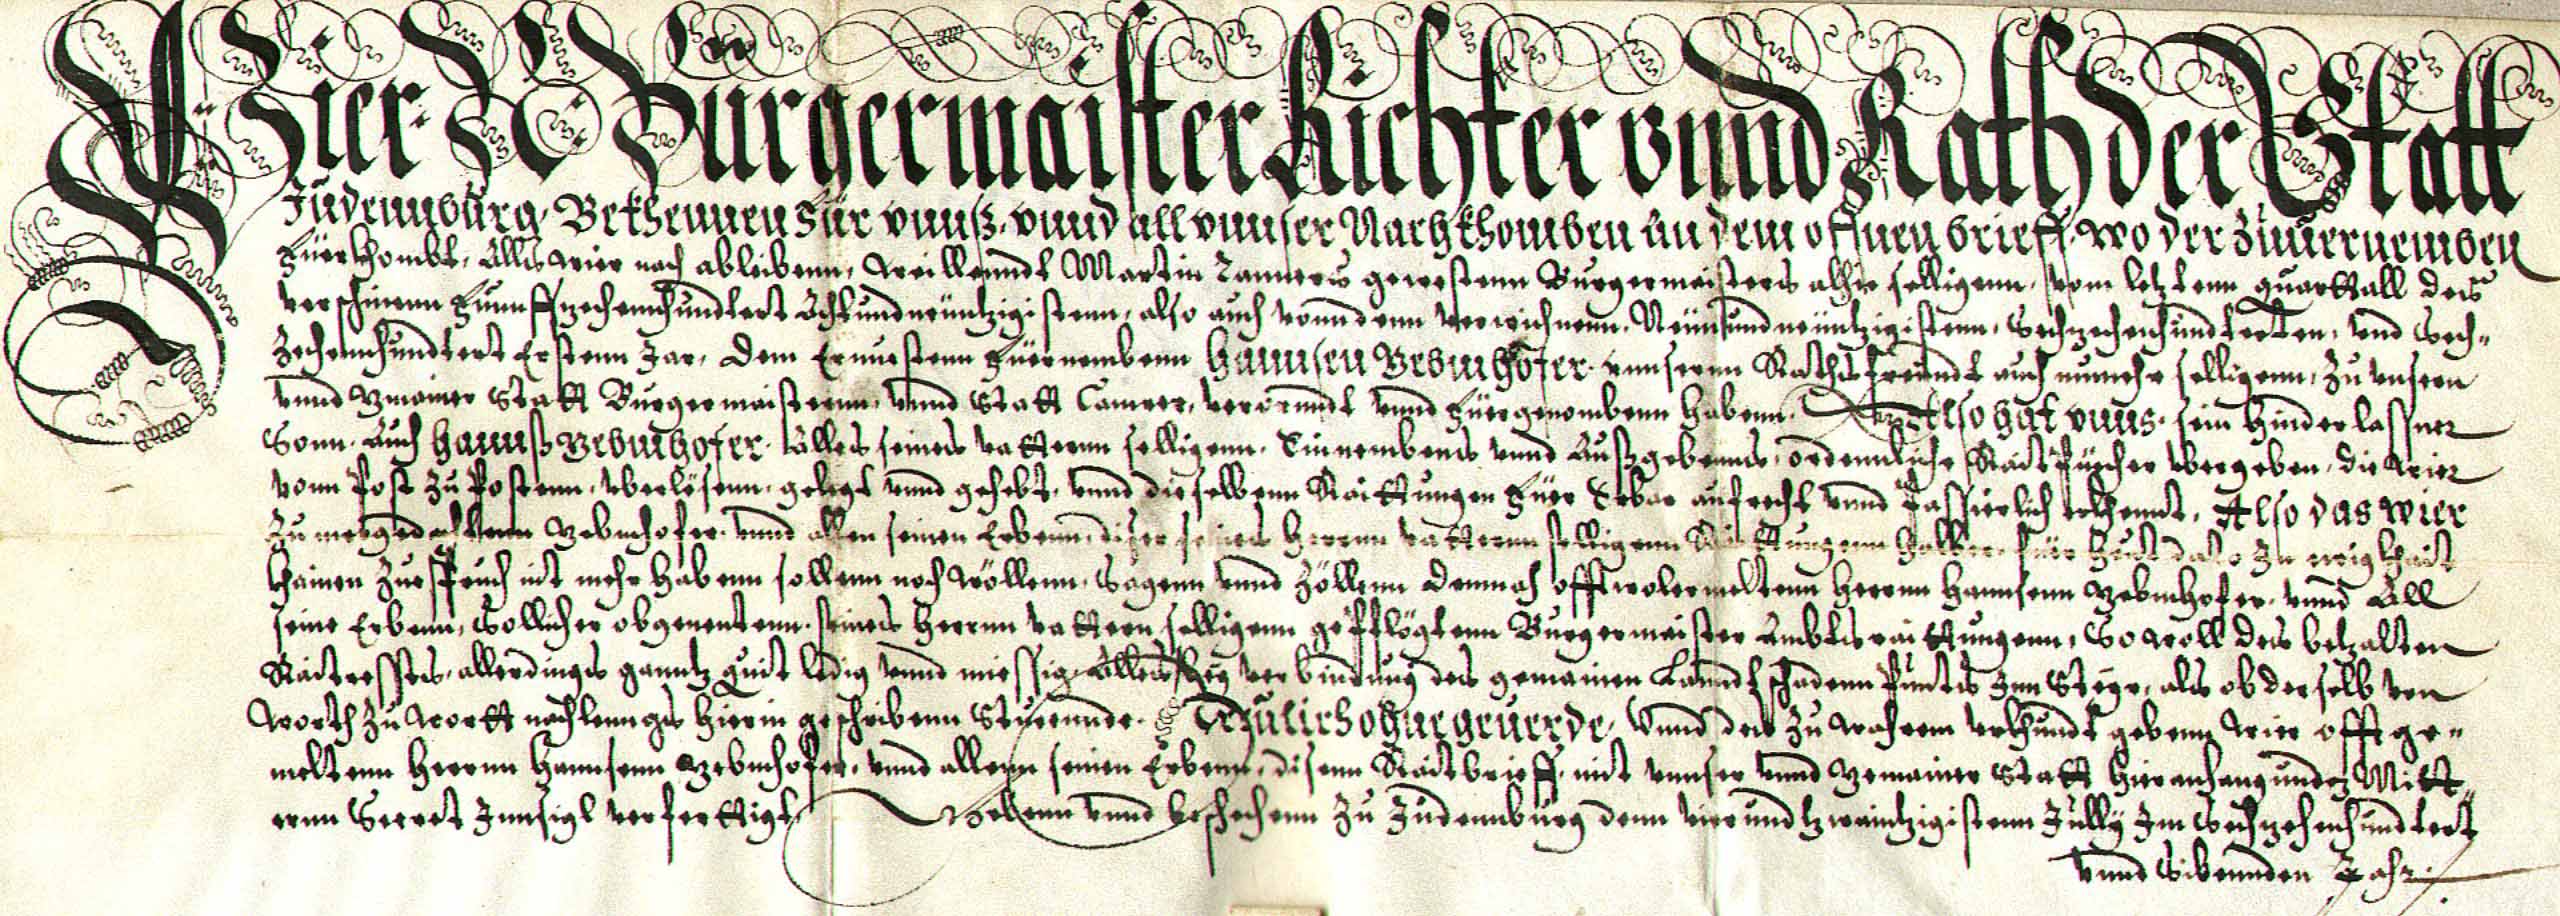 Wier N Burgermaister Richter vnnd Rath der Statt
Judennburg, Bekhennen Für vnnß, vnnd all vnnser Nachkhomben An dem offnen brieff, wo der Zuuernemben
Füerkhombt, Alls wier nach ableibenn, weillenndt Martin gewestenn Burgermaisters alhie selligenn, vom letztenn quartall des
verschinenn Funnffzechenhundtert Achtundneüntzigistenn, also auch vonn denn verwichnenn, Neünundneüntzigistenn, Sechzechenhundterten, vnd Sech-
zechennhundtert Erstenn Jar, dem Ernuestenn Füernembenn Hannsen Vebmhofer vnnserm Rathsfreündt auch nunmehr selligenn, zu vnsern
vnnd gmainer Statt Burgermaisternn, vnnd Statt Camrer, verordnndt vnnd Füergenombenn habenn. Also hat vnns, sein hinderlassner
Sonn, Auch Hannß Vebmhofer, Alles seines vatternn selligenn, Einnembens vnnd Außgebenns, ordennliche Rait Püecher vbergeben, die wier
vonn Post zu Postenn, vberlösenn, gelegt vnnd gehebt, vnnd dieselbenn Raittungen Füer Erbar aufrecht vnnd Passierlich erkhenndt, Also das wier
zu mergedachtenn Vebmhofer, vnnd allen seinen Erbenn, diser seines Herrnn vatternn selligenn Raittungenn halber, Für heüt dato zu ewigkhait
khainen Zuespruch nit mehr habenn sollenn noch wöllenn, Sagenn vnnd Zöllenn demnach offtwolermeltenn Herrnn Hannsenn Vebmhofer, vnnd All
seine Erbenn, Sollicher obgenentenn, seines Herrnn vattern selligenn gepflögtenn Burgermaister Ambtsraittungenn, So woll des bezalten
Raitressts, allerdings ganntz quit ledig vnnd miessig, Alles bey verbindung des gemainen Lanndtschadenn Puntts Inn Steyr, als ob derselb von
worth zu wortt nach lenngs hierin geschribenn Stüennde. Threülich ohne geuerde, Vnnd des zu wahrem vrkhundt gebenn wier offtge-
meltenn Herrnn Hannsenn Vebmhofer, vnnd allenn seinen Erbenn, disenn Raitbrieff, mit vnnser vnnd gemainer Statt hieranhangunden Mitt-
ernn Secret Innsigl verferttigt. Gebenn vnnd beschechenn zu Judennburg denn vierundtzwaintzigistenn Jully Im Sechzehenhundtert
vnnd Sibennden Jahr.